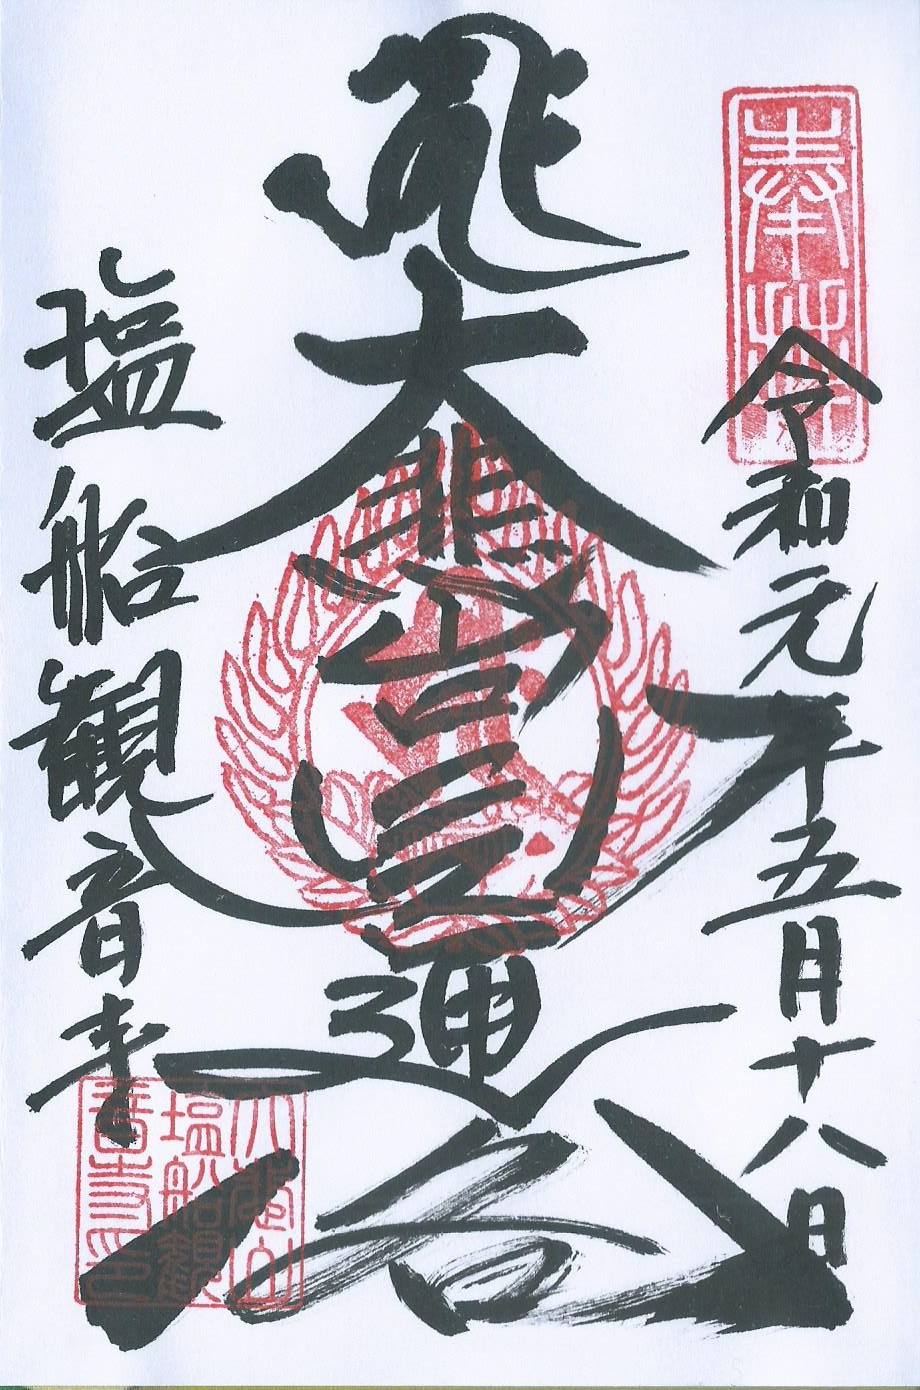 奉拝
令和元年五月十八日
大悲
通
塩船観音寺
大悲山
塩船観
音寺印